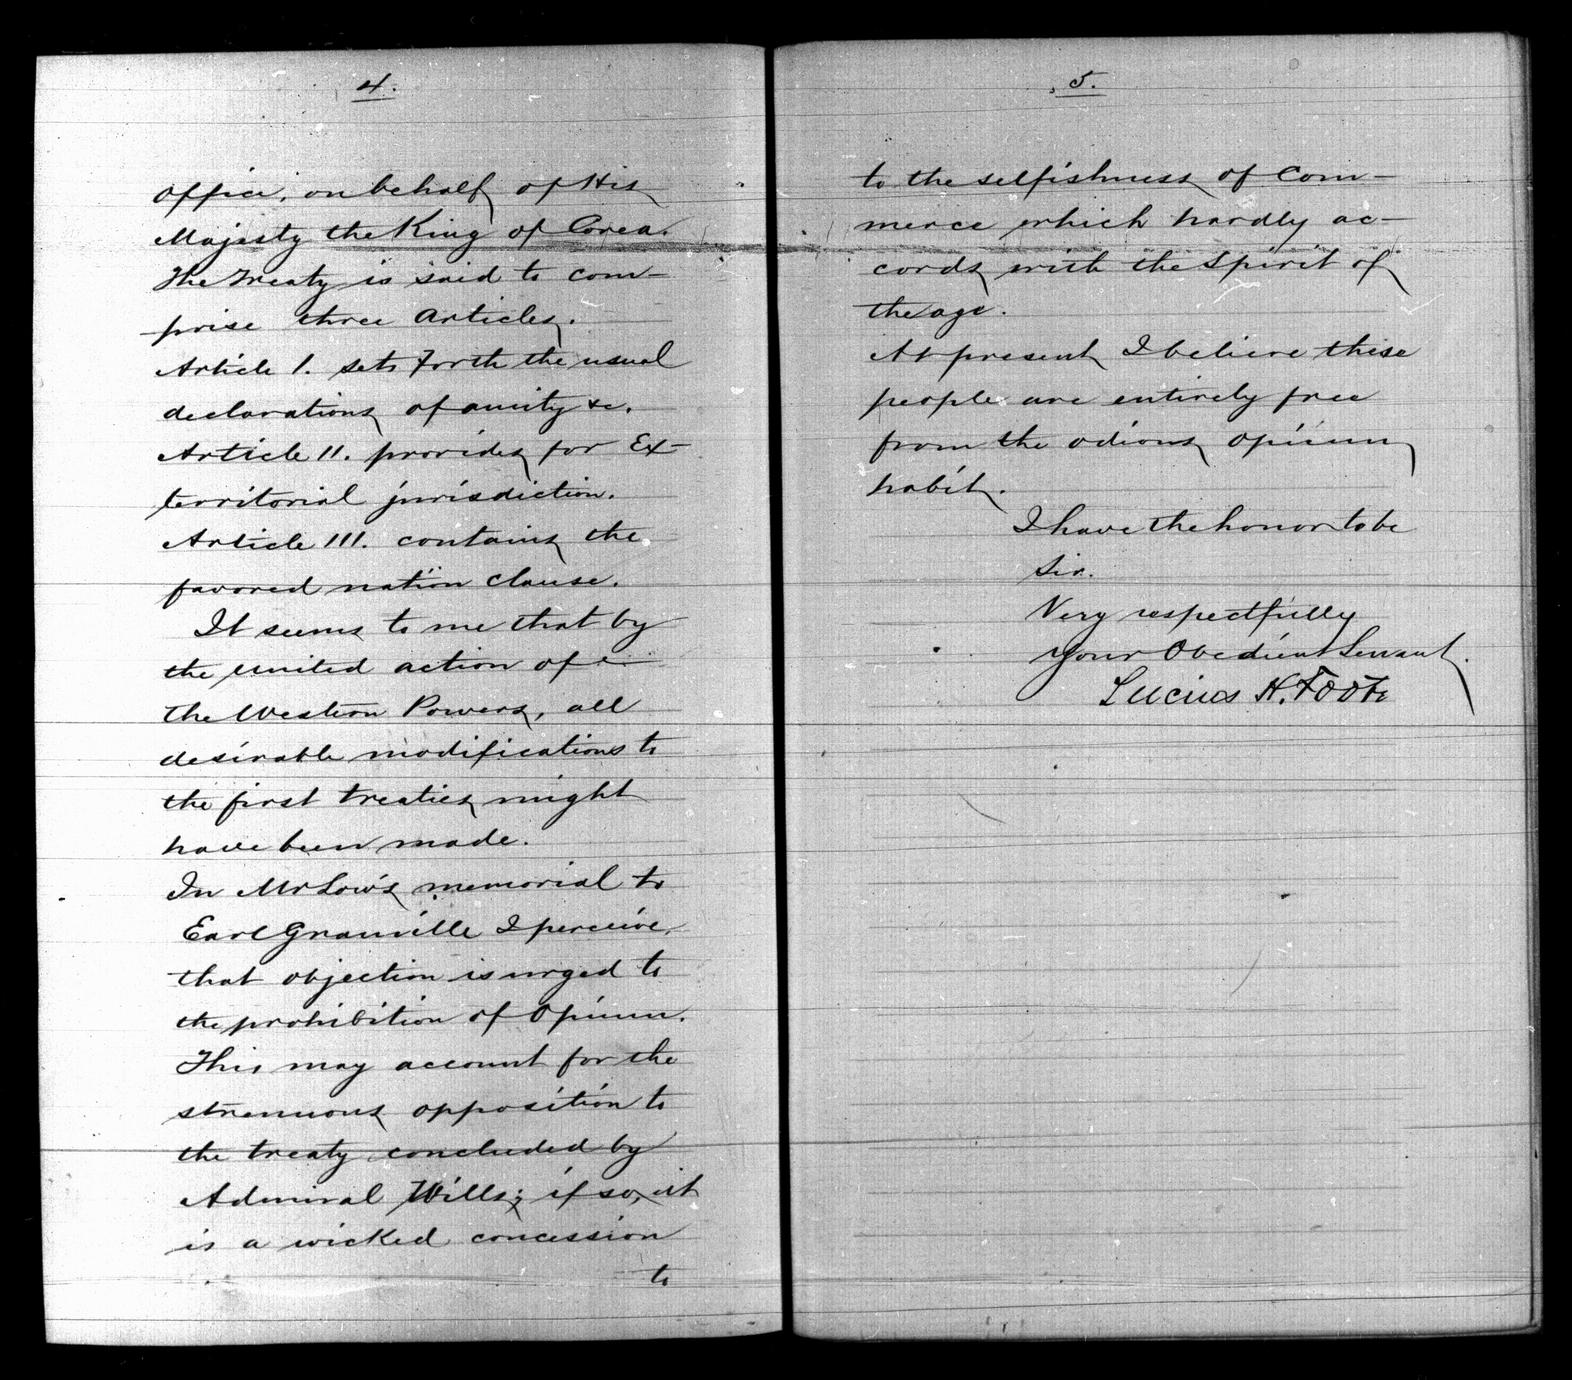 4.
Office, on behalf of His
Majesty the King of Corea.
The Treaty is said to com-
prise three Articles.
Article 1. sets forth the usual
declarations of amity &c.
Article 11. provides for Ex-
territorial jurisdiction.
Article 111. contains the
favored nation clause.
It seems to me that by
the united action of
the Western Powers, all
desirable modifications to
the first treaties might
have been made.
In Mr Low's memorial to
Earl Granville I perceive,
that objection is urged to
the prohibition of Opium.
This may account for the
strenuous opposition to
the treaty concluded by
Admiral Wills; if so, it
is a wicked concession
to
5.
to the selfishness of Com-
merce which hardly ac-
cords with the Spirit of
the age.
At present I believe these
people are entirely free
from the odious opium
habit.
I have the honor to be
Sir.
Very respectfully
your Obedient Servant.
Lucius H. Foote